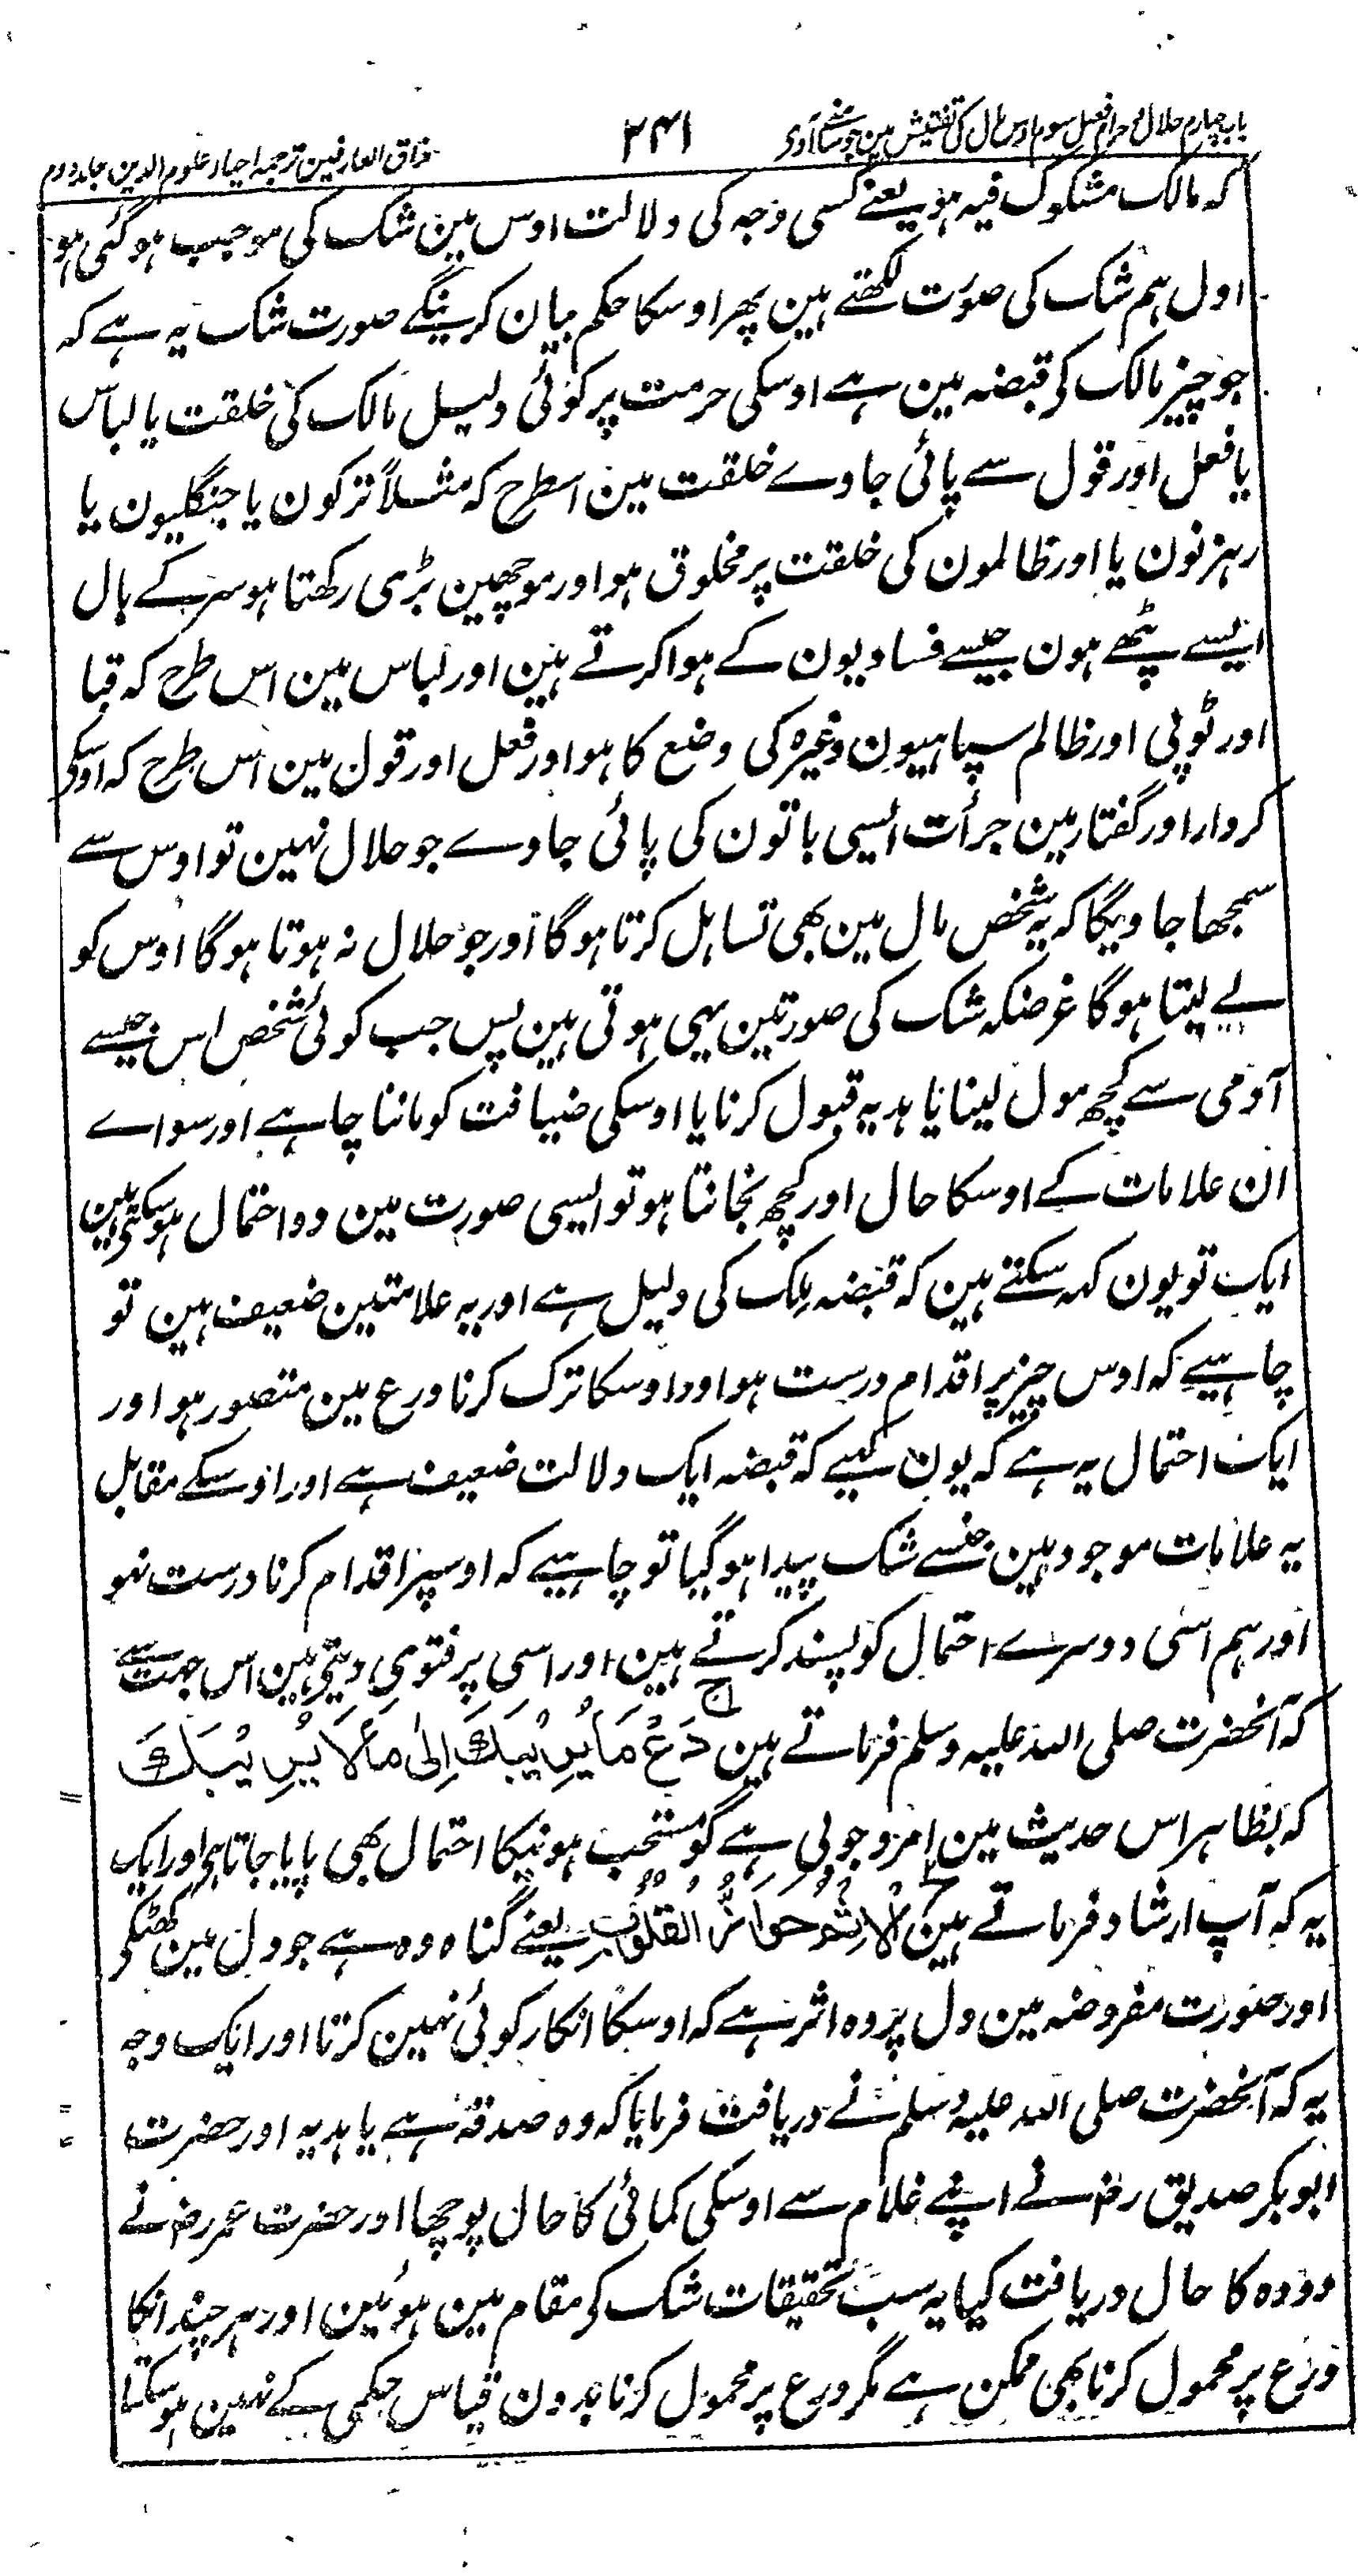 باب چہارم حلال و حرام فصل سوم اوس مال کی تفتیش مین جو سامنے آوی
۲۴۱
مذاق العارفین ترجمہ احیاء علوم الدین جلد دوم
کہ مالک مشکوک فیہ ہو یعنے کسی وجہ کی دلالت اوس مین شک کی موجب ہو گئی ہو
اول ہم شک کی صورت لکھتے ہین پھر اوسکا حکم بیان کرینگے صورت شک یہ ہے کہ
جو چیز مالک کی قبضہ مین ہے اوسکی حرمت پر کوئی دلیل مالک کی خلقت یا لباس
یا فعل اور قول سے پائی جاوے خلقت مین اسطرح کہ مثلاً ترکون یا جنگلیون یا
رہزنون یا اور ظالمون کی خلقت پر مخلوق ہو اور موچھین بڑی رکھتا ہو سر کے بال
ایسے پٹھے ہون جیسے فسادیون کے ہوا کرتے ہین اور لباس مین اس طرح کہ قبا
اور ٹوپی اور ظالم سپاہیون وغیرہ کی وضع کا ہو اور فعل اور قول مین اس طرح کہ اوسکی
کردار اور گفتار مین جرأت ایسی باتون کی پائی جاوے جو حلال نہین تو اوس سے
سمجھا جاویگا کہ یہ شخص مال مین بھی تساہل کرتا ہوگا اور جو حلال نہ ہوتا ہوگا اوس کو
لے لیتا ہوگا غرضکہ شک کی صورتین یہی ہوتی ہین پس جب کوئی شخص اس جیسے
آدمی سے کچھ مول لینا یا ہدیہ قبول کرنا یا اوسکی ضیافت کو ماننا چاہے اور سواے
ان علامات کے اوسکا حال اور کچھ نجانتا ہو تو ایسی صورت مین دو احتمال ہو سکتے ہین
ایک تو یون کہہ سکتے ہین کہ قبضہ مِلک کی دلیل ہے اور یہ علامتین ضعیف ہین تو
چاہیے کہ اوس چیز پر اقدام درست ہو اور اوسکا ترک کرنا ورع مین متصور ہو اور
ایک احتمال یہ ہے کہ یون کہیے کہ قبضہ ایک دلالت ضعیف ہے اور اوسکے مقابل
یہ علامات موجود ہین جنسے شک پیدا ہو گیا تو چاہیے کہ اوسپر اقدام کرنا درست نہو
اور ہم اسی دوسرے احتمال کو پسند کرتے ہین اور اسی پر فتوی دیتی ہین اس جہت سے
کہ آنحضرت صلی اللہ علیہ وسلم فرماتے ہین دَعْ مَا يُرِيْبُكَ اِلٰى مَا لَا يُرِيْبُكَ
کہ بظاہر اس حدیث مین امر وجوبی ہے گو مستحب ہونیکا احتمال بھی پایا جاتا ہی اور ایک
یہ کہ آپ ارشاد فرماتے ہین اَلْاِثْمُ حَوَازُّ الْقُلُوْبِ یعنے گناہ وہ ہے جو دل مین کھٹکی
اور صورت مفروضہ مین دل پر وہ اثر ہے کہ اوسکا انکار کوئی نہین کرتا اور ایک وجہ
یہ کہ آنحضرت صلی اللہ علیہ وسلم نے دریافت فرمایا کہ وہ صدقہ ہے یا ہدیہ اور حضرت
ابوبکر صدیق رضہ نے اپنے غلام سے اوسکی کمائی کا حال پوچھا اور حضرت عمر رضہ نے
دودہ کا حال دریافت کیا یہ سب تحقیقات شک کی مقام مین ہوئین اور ہرچند انکا
ورع پر محمول کرنا بھی ممکن ہے مگر ورع پر محمول کرنا بدون قیاس حکمی کے نہین ہو سکتا